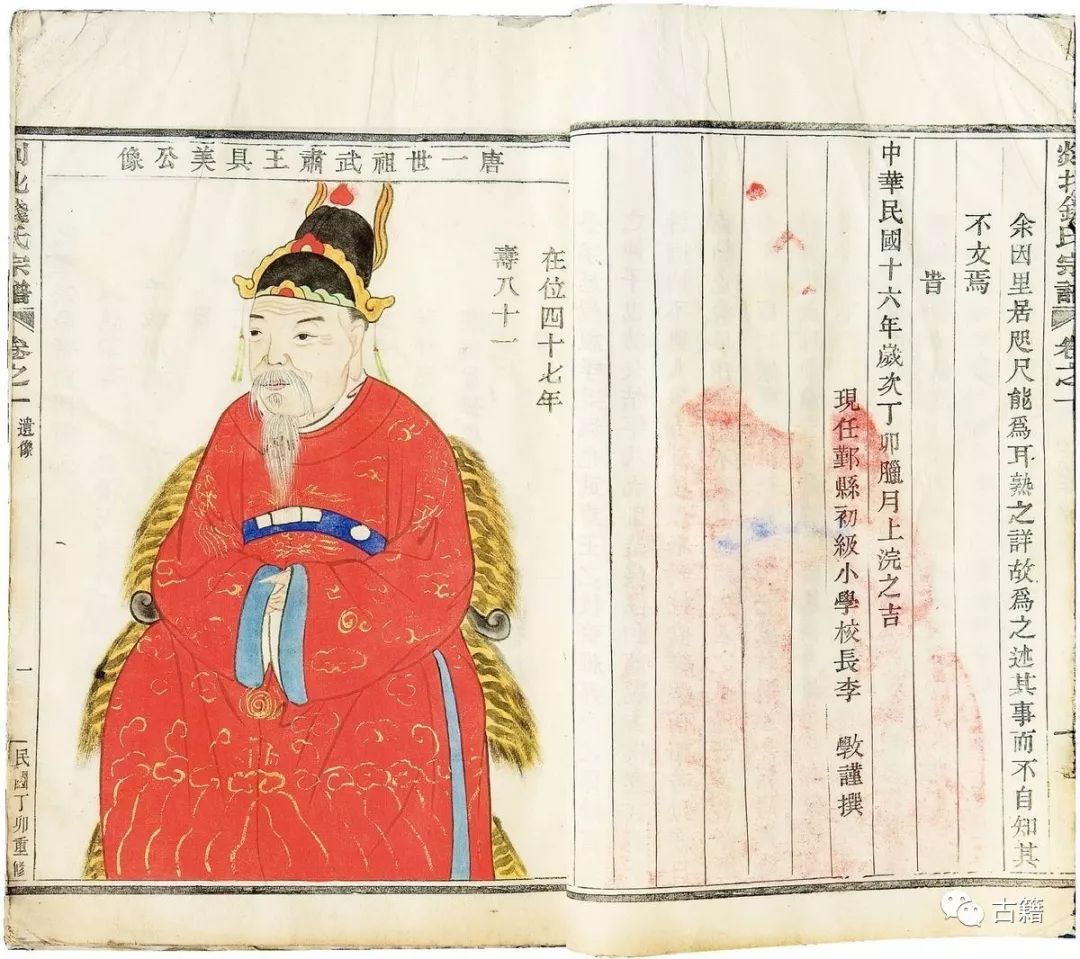 氏宗譜
卷之一
余因里居咫尺能為耳熟之詳故為之述其事而不自知其
不文焉
旹
中華民國十六年歲次丁卯臘月上浣之吉
現任鄞縣初級小學校長李 斆謹撰
唐一世祖武肅王具美公像
在位四十七年
壽八十一
錢氏宗譜
卷之一
遺像
一
民國丁卯重修
古籍